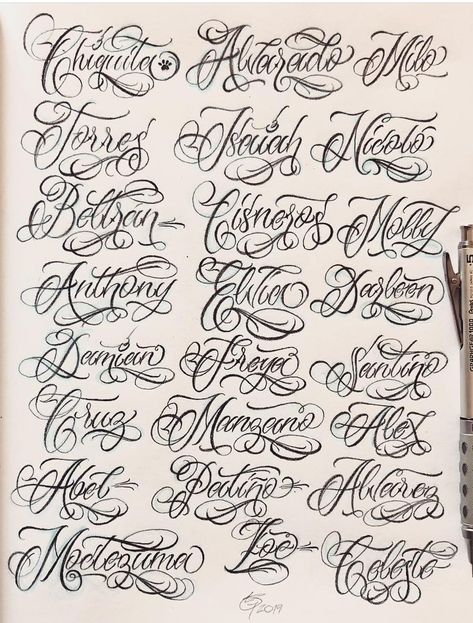 Chiquita Alvarado Milo
Torres Isaiah Nicoló
Beltran Cisneros Molly
Anthony Elvia Darleen
Damian Freya Santino
Cruz Manzano Alex
Abel Patiño Alvarez
Moctezuma Zoe Celeste
2019